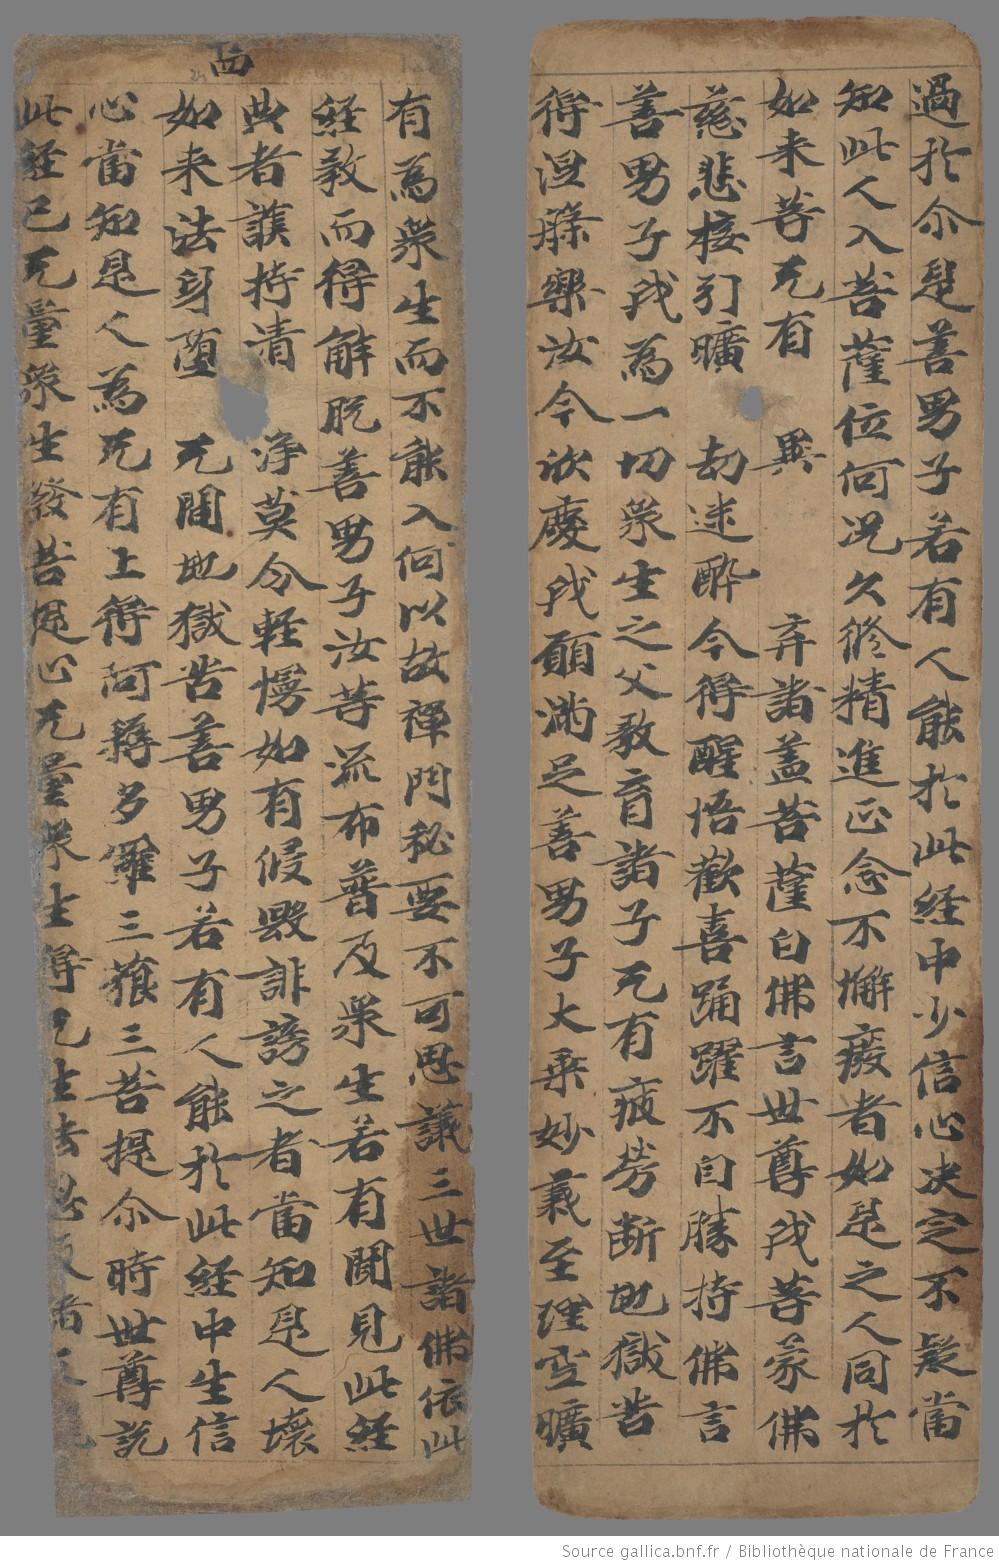 過於尒是善男子若有人能於此経中少信心决定不疑當
知此人入菩薩位何况久修精進正念不懈癈者如是之人同於
如来等无有異弃諸蓋菩薩白佛言世尊我等蒙佛
慈悲接引曠劫迷酔今得醒悟歡喜踊躍不自勝持佛言
善男子我為一切衆生之父教育諸子无有疲勞断地獄苦
得涅槃樂汝今欲度我願満足善男子大乗妙義至理空曠
有為衆生而不能入何以故禅門秘要不可思議三世諸佛依此
経教而得解脱善男子汝等流布普及衆生若有聞見此経
典者護持清净莫令軽慢如有侵毁誹謗之者當知是人壊
如来法身堕无間地獄苦善男子若有人能於此経中生信
心當知是人為无有上得阿耨多羅三藐三菩提尒時世尊説
此経已无量衆生發菩提心无量衆生得无生法忍及諸天
Source gallica.bnf.fr / Bibliothèque nationale de France